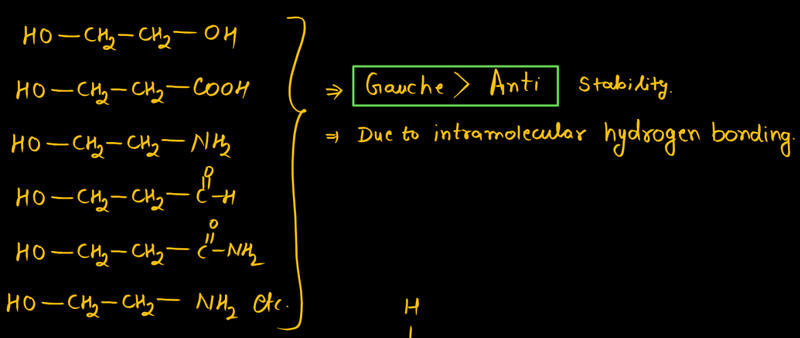 HO—CH₂—CH₂—OH
HO—CH₂—CH₂—COOH
HO—CH₂—CH₂—NH₂
O
HO—CH₂—CH₂—C—H
O
HO—CH₂—CH₂—C—NH₂
HO—CH₂—CH₂—NH₂ etc.
⇒ Gauche > Anti Stability.
⇒ Due to intramolecular hydrogen bonding.
H